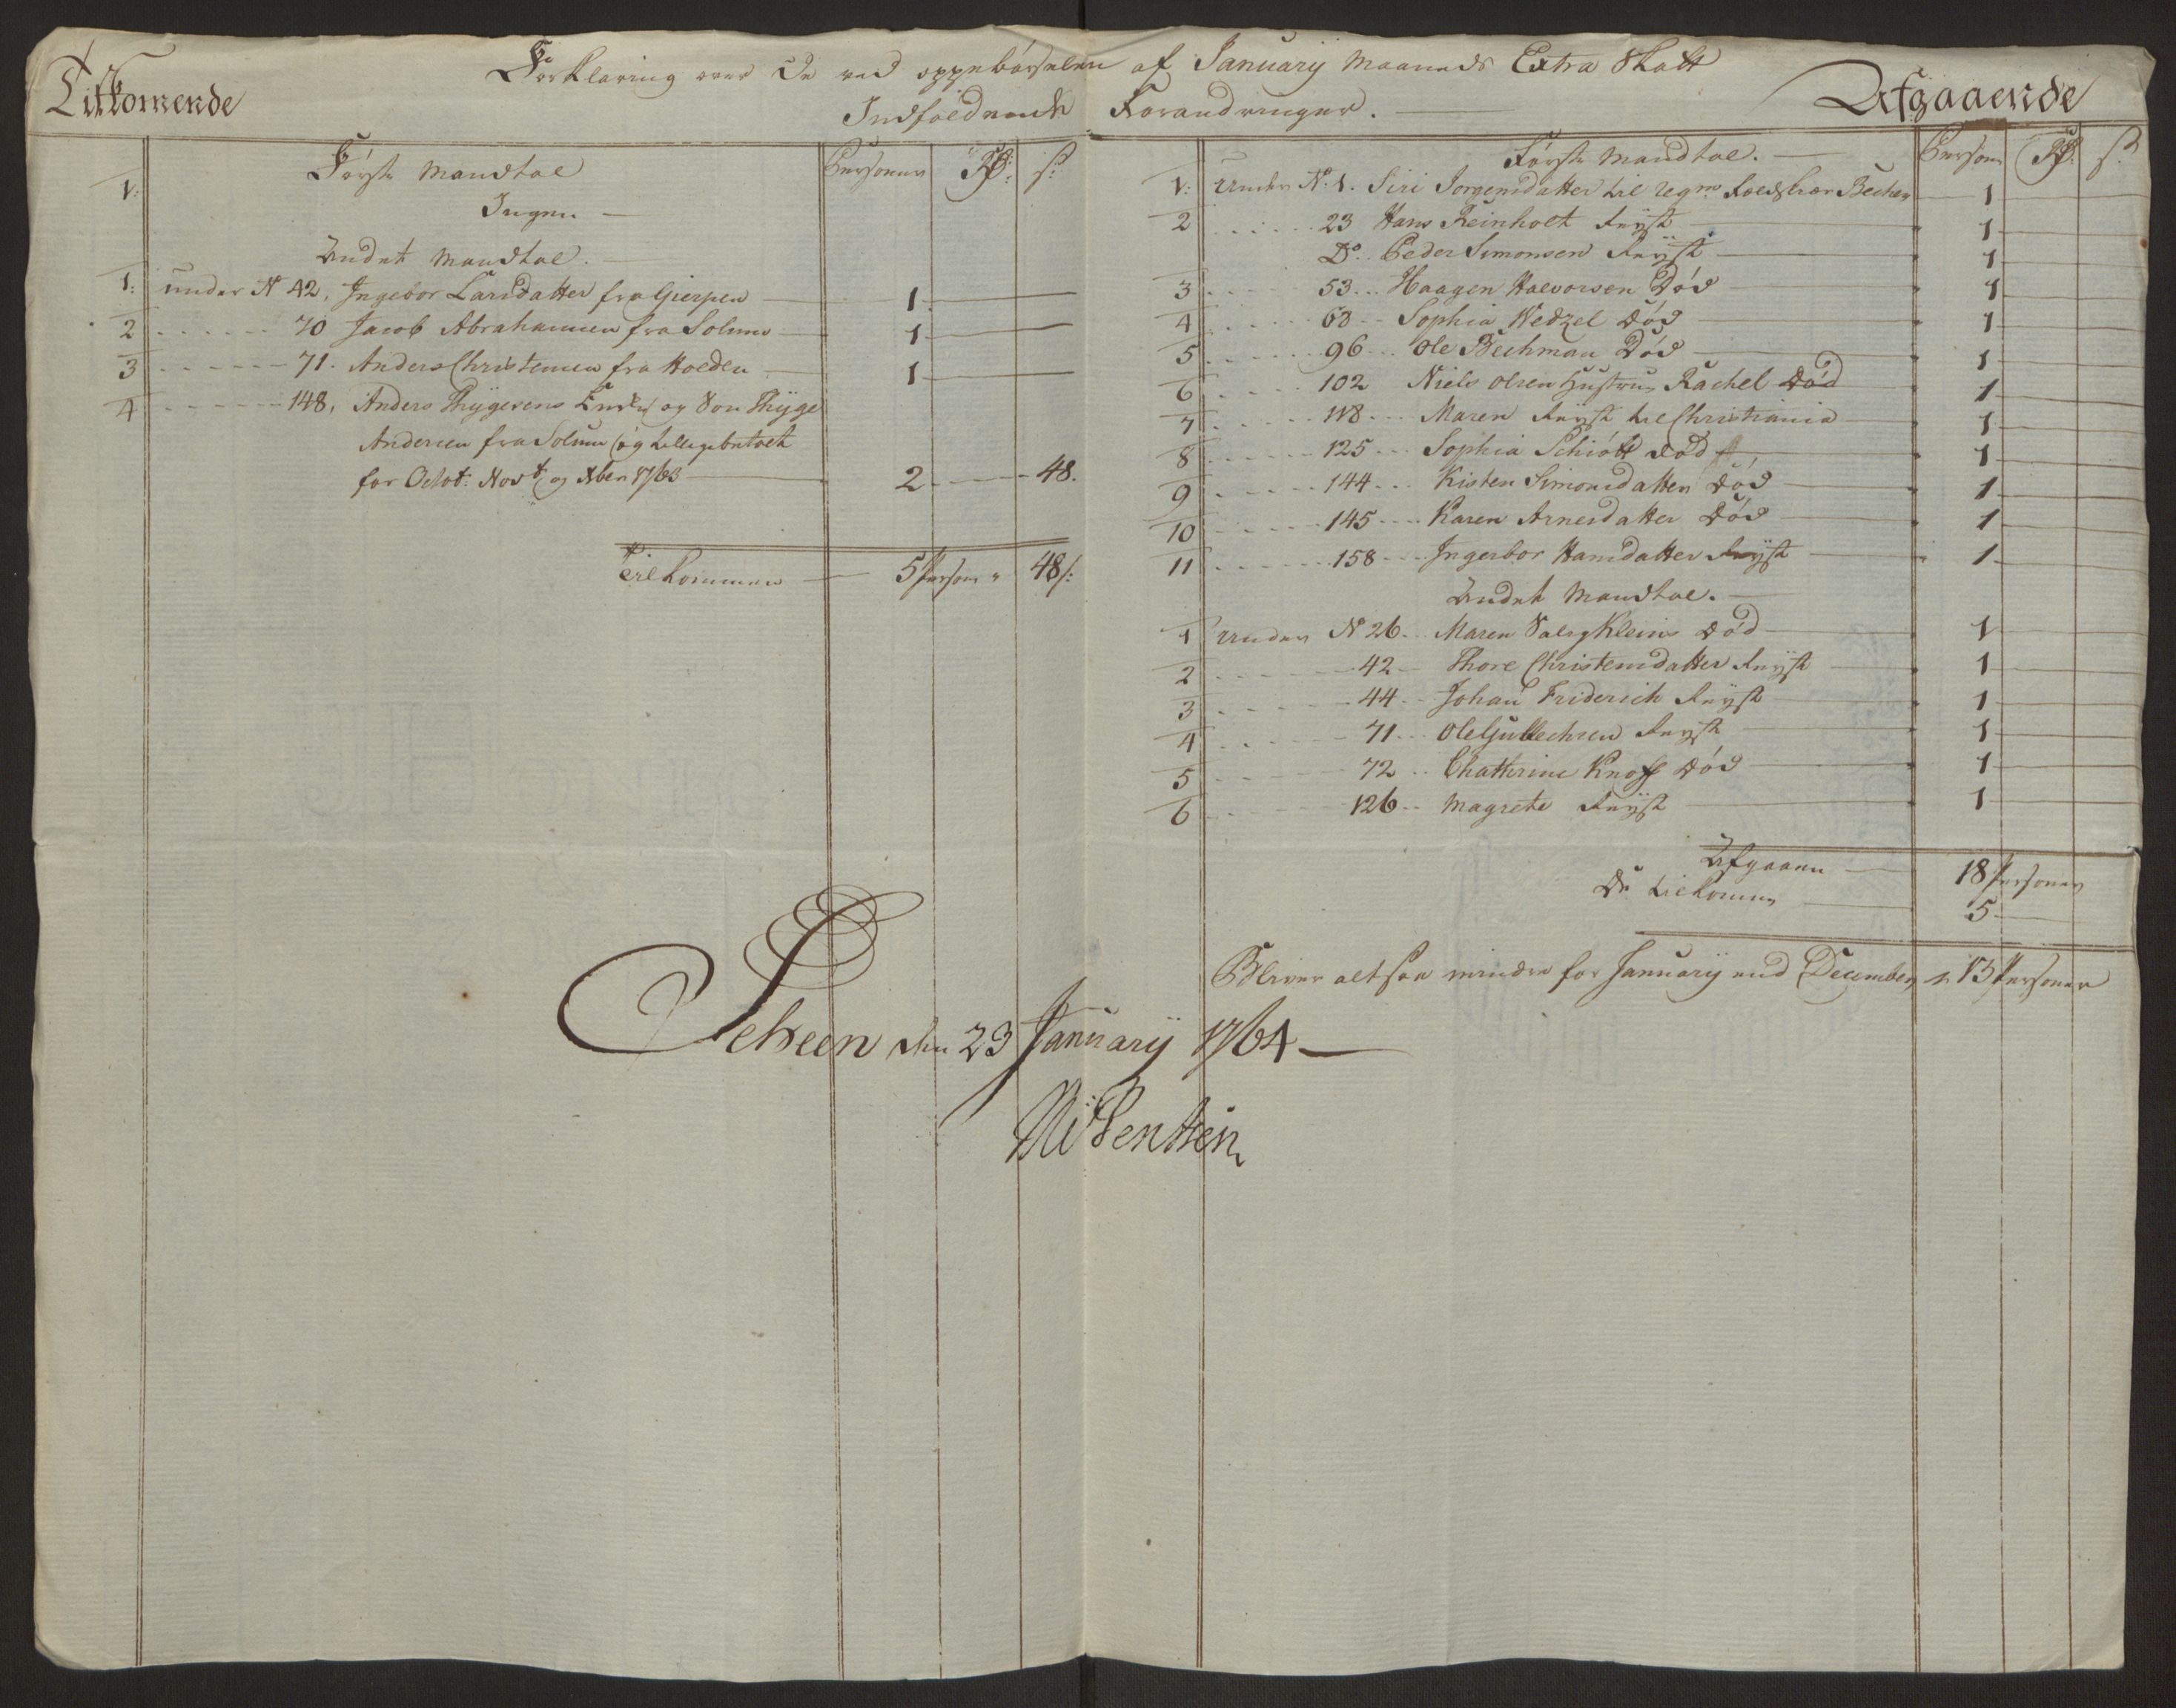 Forklaring over de ved oppebørselen af Januarij Maaneds Extra Skatt
Indfaldende Forandringer.
Tilkomende
Første Mandtal Personer Rd: s:
1: Ingen
Andet Mandtal.
1: under N 42, Ingebor Larsdatter fra Gierpen 1
2 70 Jacob Abrahamsen fra Solum 1
3 71. Anders Christensen fra Holden 1
4 148, Anders Thÿgesens Enke og Søn Thÿge
Andersen fra Solum og tillige betalt
for Octob: Novb og Xber 1763 2 48.
Tilkommen 5 Person 48 s:
Afgaaende
Første Mandtal. Person Rd: s:
1: Under No: 1. Siri Jorgensdatter til Regm: Feldskiær Becher 1
2 23 Hans Reinholt Reijst 1
Do. Peder Simonsen Reijst 1
3 53 Haagen Halvorsen Død 1
4 63 Sophia Wedzel død 1
5 96 Ole Bechman Død 1
6 102 Niels Olsens Hustrue Rachel død 1
7 118 Maren Reijst til Christiania 1
8 125 Sophia Schiøtt død 1
9 144 Kisten Simonsdatter død 1
10 145 Karen Arnesdatter død 1
11 158 Ingerbor Hansdatter Reijst 1
Andet Mandtal.
1 Under N 26 Maren Salig Kleins død 1
2 42 Thore Christensdatter Reijst 1
3 44 Johan Friderich Reijst 1
4 71 Ole Gullechsen Reijst 1
5 72 Chathrine Knoff død 1
6 126 Magrete Reijst 1
Afgaaen 18 Personer
De tilkomne 5
Bliver altsaa mindre for Januarij end December 13 Personer
Scheen den 23 Januarij 1764